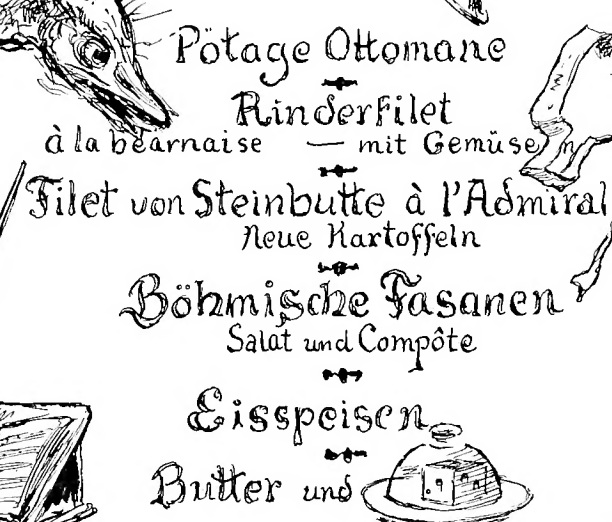 Pôtage Ottomane
Rinderfilet
à la béarnaise — mit Gemüsen
Filet von Steinbutte à l'Admiral
Neue Kartoffeln
Böhmische Fasanen
Salat und Compôte
Eisspeisen
Butter und